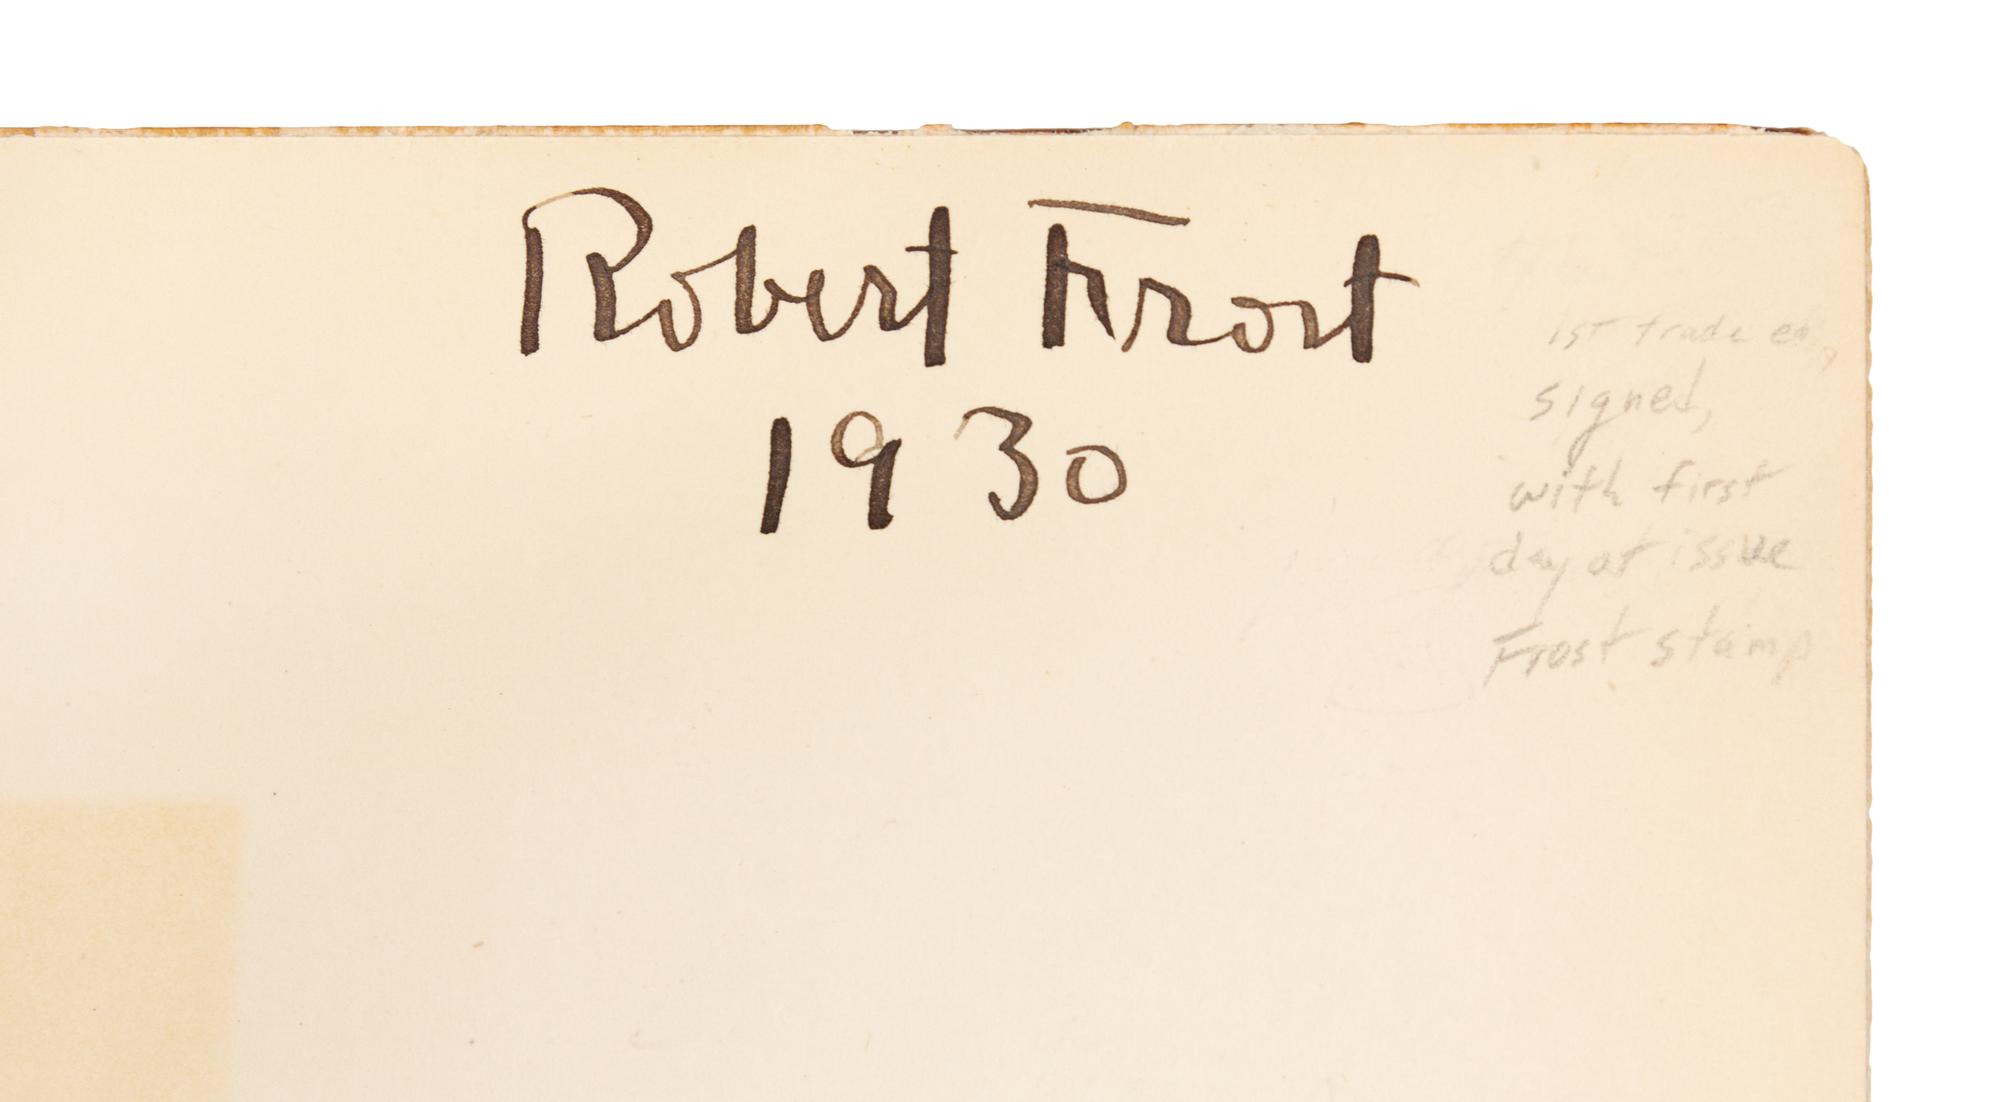 Robert Frost
1930
1st trade ed,
signed,
with first
day of issue
Frost stamp